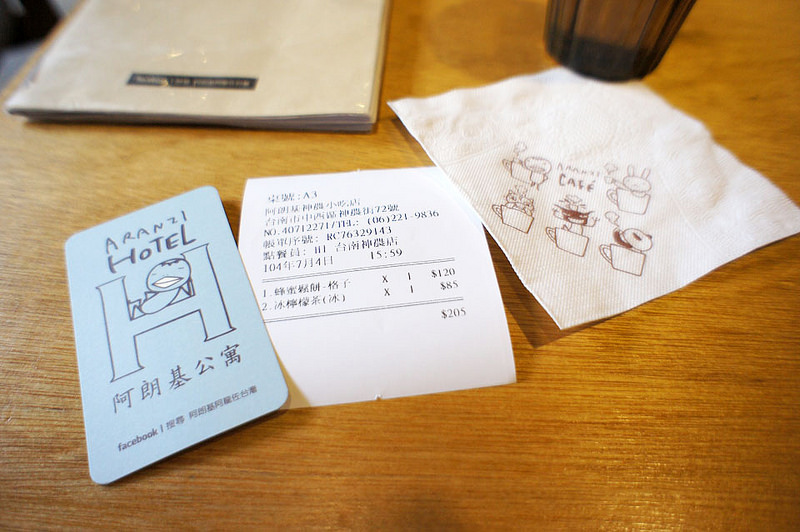 桌號:A3
阿朗基神農小吃店
台南市中西區神農街72號
NO.40712271/TEL: (06)221-9836
帳單序號: RC76329143
點餐員: H1 台南神農店
104年7月4日 15:59
1.蜂蜜鬆餅-格子 X 1 $120
2.冰檸檬茶(冰) X 1 $85
$205
ARANZI
HOTEL
H
阿朗基公寓
facebook | 搜尋 阿朗基阿龍佐台灣
ARANZI
CAFÉ